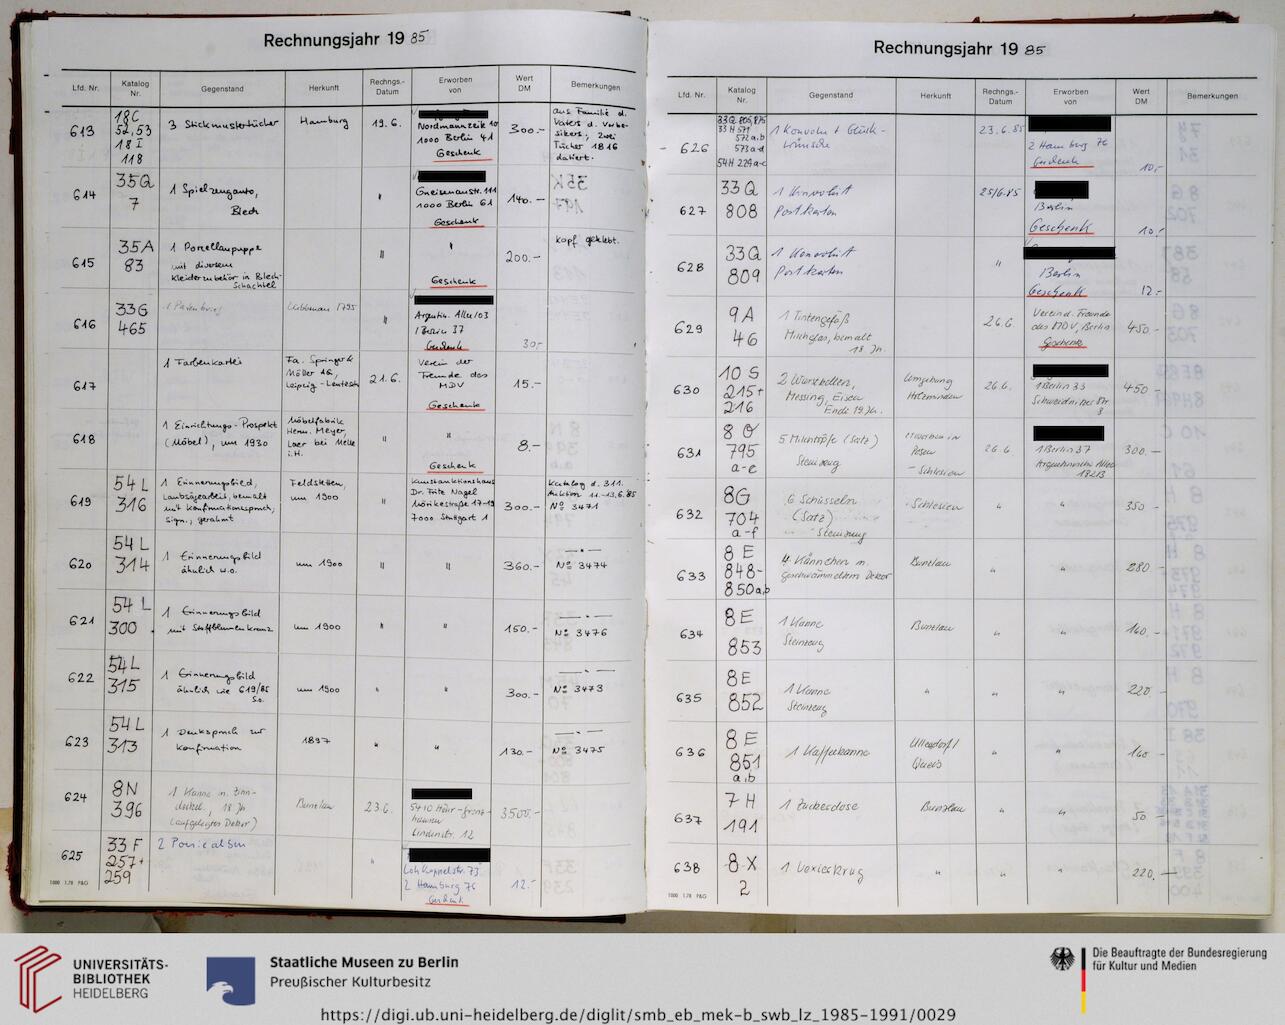 Rechnungsjahr 19 85
Lfd. Nr. Katalog Nr. Gegenstand Herkunft Rechngs.-Datum Erworben von Wert DM Bemerkungen
613
18 C
52,53
18 I
118
3 Stickmustertücher
Hamburg
19.6.
1000 Berlin 41
Geschenk
300.-
aus Familie d.
Vaters d. Vorbe-
sitzers; zwei
Tücher 1816
datiert.
614
35 Q
7
1 Spielzeugauto,
Blech
"
Gneisenaustr. 111
1000 Berlin 61
Geschenk
140.-
615
35 A
83
1 Porzellanpuppe
mit diversem
Kleiderzubehör in Blech-
Schachtel
"
"
Geschenk
200.-
Kopf geklebt.
616
33 G
465
1 Patenbrief
1795
"
1 Berlin 37
Geschenk
30,-
617
1 Farbenkartei
Fa. Springer &
Möller AG,
Leipzig-Leutzsch
21.6.
Verein der
Freunde des
MDV
Geschenk
15.-
618
1 Einrichtungs-Prospekt
(Möbel), um 1930
Möbelfabrik
Herm. Meyer,
Laer bei Melle
i.H.
"
"
Geschenk
8.-
619
54 L
316
1 Erinnerungsbild,
Laubsägearbeit, bemalt
mit Konfirmationsspruch,
sign., gerahmt
Feldstetten,
um 1900
"
Kunstauktionshaus
Dr. Fritz Nagel
Mörikestraße 17-19
7000 Stuttgart 1
300.-
Katalog d. 311.
Auktion 11.-13.6.85
No 3471
620
54 L
314
1 Erinnerungsbild
ähnlich w.o.
um 1900
"
"
360.-
No 3474
621
54 L
300
1 Erinnerungsbild
mit Stoffblumenkranz
um 1900
"
"
150.-
No 3476
622
54 L
315
1 Erinnerungsbild
ähnlich wie 619/85
s.o.
um 1900
"
"
300.-
No 3473
623
54 L
313
1 Denkspruch zur
Konfirmation
1897
"
"
130.-
No 3475
624
8 N
396
1 Kanne m. Zinn-
deckel, 18. Jh
(aufgelegter Dekor)
Bunzlau
23.6.
5410 Höhr-Grenz-
hausen
Lindenstr. 12
3500.-
625
33 F
257+
259
2 Poesiealben
"
2 Hamburg 76
Geschenk
12.-
1000 1.78 P&G
Rechnungsjahr 19 85
Lfd. Nr. Katalog Nr. Gegenstand Herkunft Rechngs.-Datum Erworben von Wert DM Bemerkungen
626
33 H 571
572 a,b
573 a-d
54 H 229 a-c
1 Konvolut Glück-
wünsche
23.6.85
2 Hamburg 76
Geschenk
10,-
627
33 Q
808
1 Konvolut
Postkarten
25/6.85
Berlin
Geschenk
10,-
628
33 Q
809
1 Konvolut
Postkarten
"
Berlin
Geschenk
12.-
629
9 A
46
1 Tintengefäß
Milchglas, bemalt
18. Jh.
26.6.
Verein d. Freunde
des MDV, Berlin
Geschenk
450.-
630
10 S
215+
216
2 Wurstkellen,
Messing, Eisen
Ende 19. Jh.
Umgebung
Holzminden
26.6.
1 Berlin 33
Schweidnitzer Str.
8
450.-
631
8 O
795
a-e
5 Milchtöpfe (Satz)
Steinzeug
Erworben in
Posen
- Schlesien
26.6
1 Berlin 37
Argentinische Allee
300.-
632
8 G
704
a-f
6 Schüsseln
(Satz)
Steinzeug
Schlesien
"
"
350.-
633
8 E
848-
850 a,b
4 Kännchen m.
geschwämmeltem Dekor
Bunzlau
"
"
280.-
634
8 E
853
1 Kanne
Steinzeug
Bunzlau
"
"
160.-
635
8 E
852
1 Kanne
Steinzeug
"
"
"
220.-
636
8 E
851
a,b
1 Kaffeekanne
Ullersdorf/
Queis
"
"
160.-
637
7 H
191
1 Zuckerdose
Bunzlau
"
"
50.-
638
8 X
2
1 Vexierkrug
"
"
"
220.-
1000 1.78 P&G
UNIVERSITÄTS-
BIBLIOTHEK
HEIDELBERG
Staatliche Museen zu Berlin
Preußischer Kulturbesitz
Die Beauftragte der Bundesregierung
für Kultur und Medien
https://digi.ub.uni-heidelberg.de/diglit/smb_eb_mek-b_swb_lz_1985-1991/0029